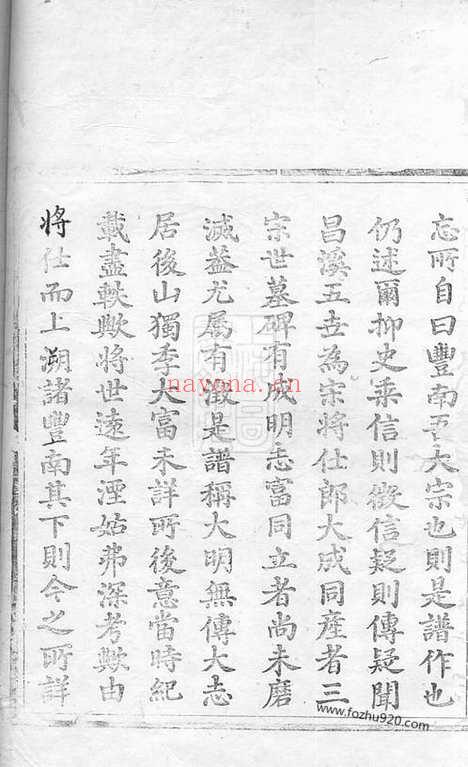 忘所自曰豐南吾大宗也則是譜作也
仍述爾抑史乘信則徵信疑則傳疑聞
昌溪五世為宗將仕郎大成同產者三
宗世墓碑有成明志富同立者尚未磨
滅益尤屬有徵是譜稱大明無傳大志
居後山獨季大富未詳所後意當時紀
載盡軼歟將世遠年湮姑弗深考歟由
將仕而上溯諸豐南其下則今之所詳
nayona.cn
www.fozhu920.com